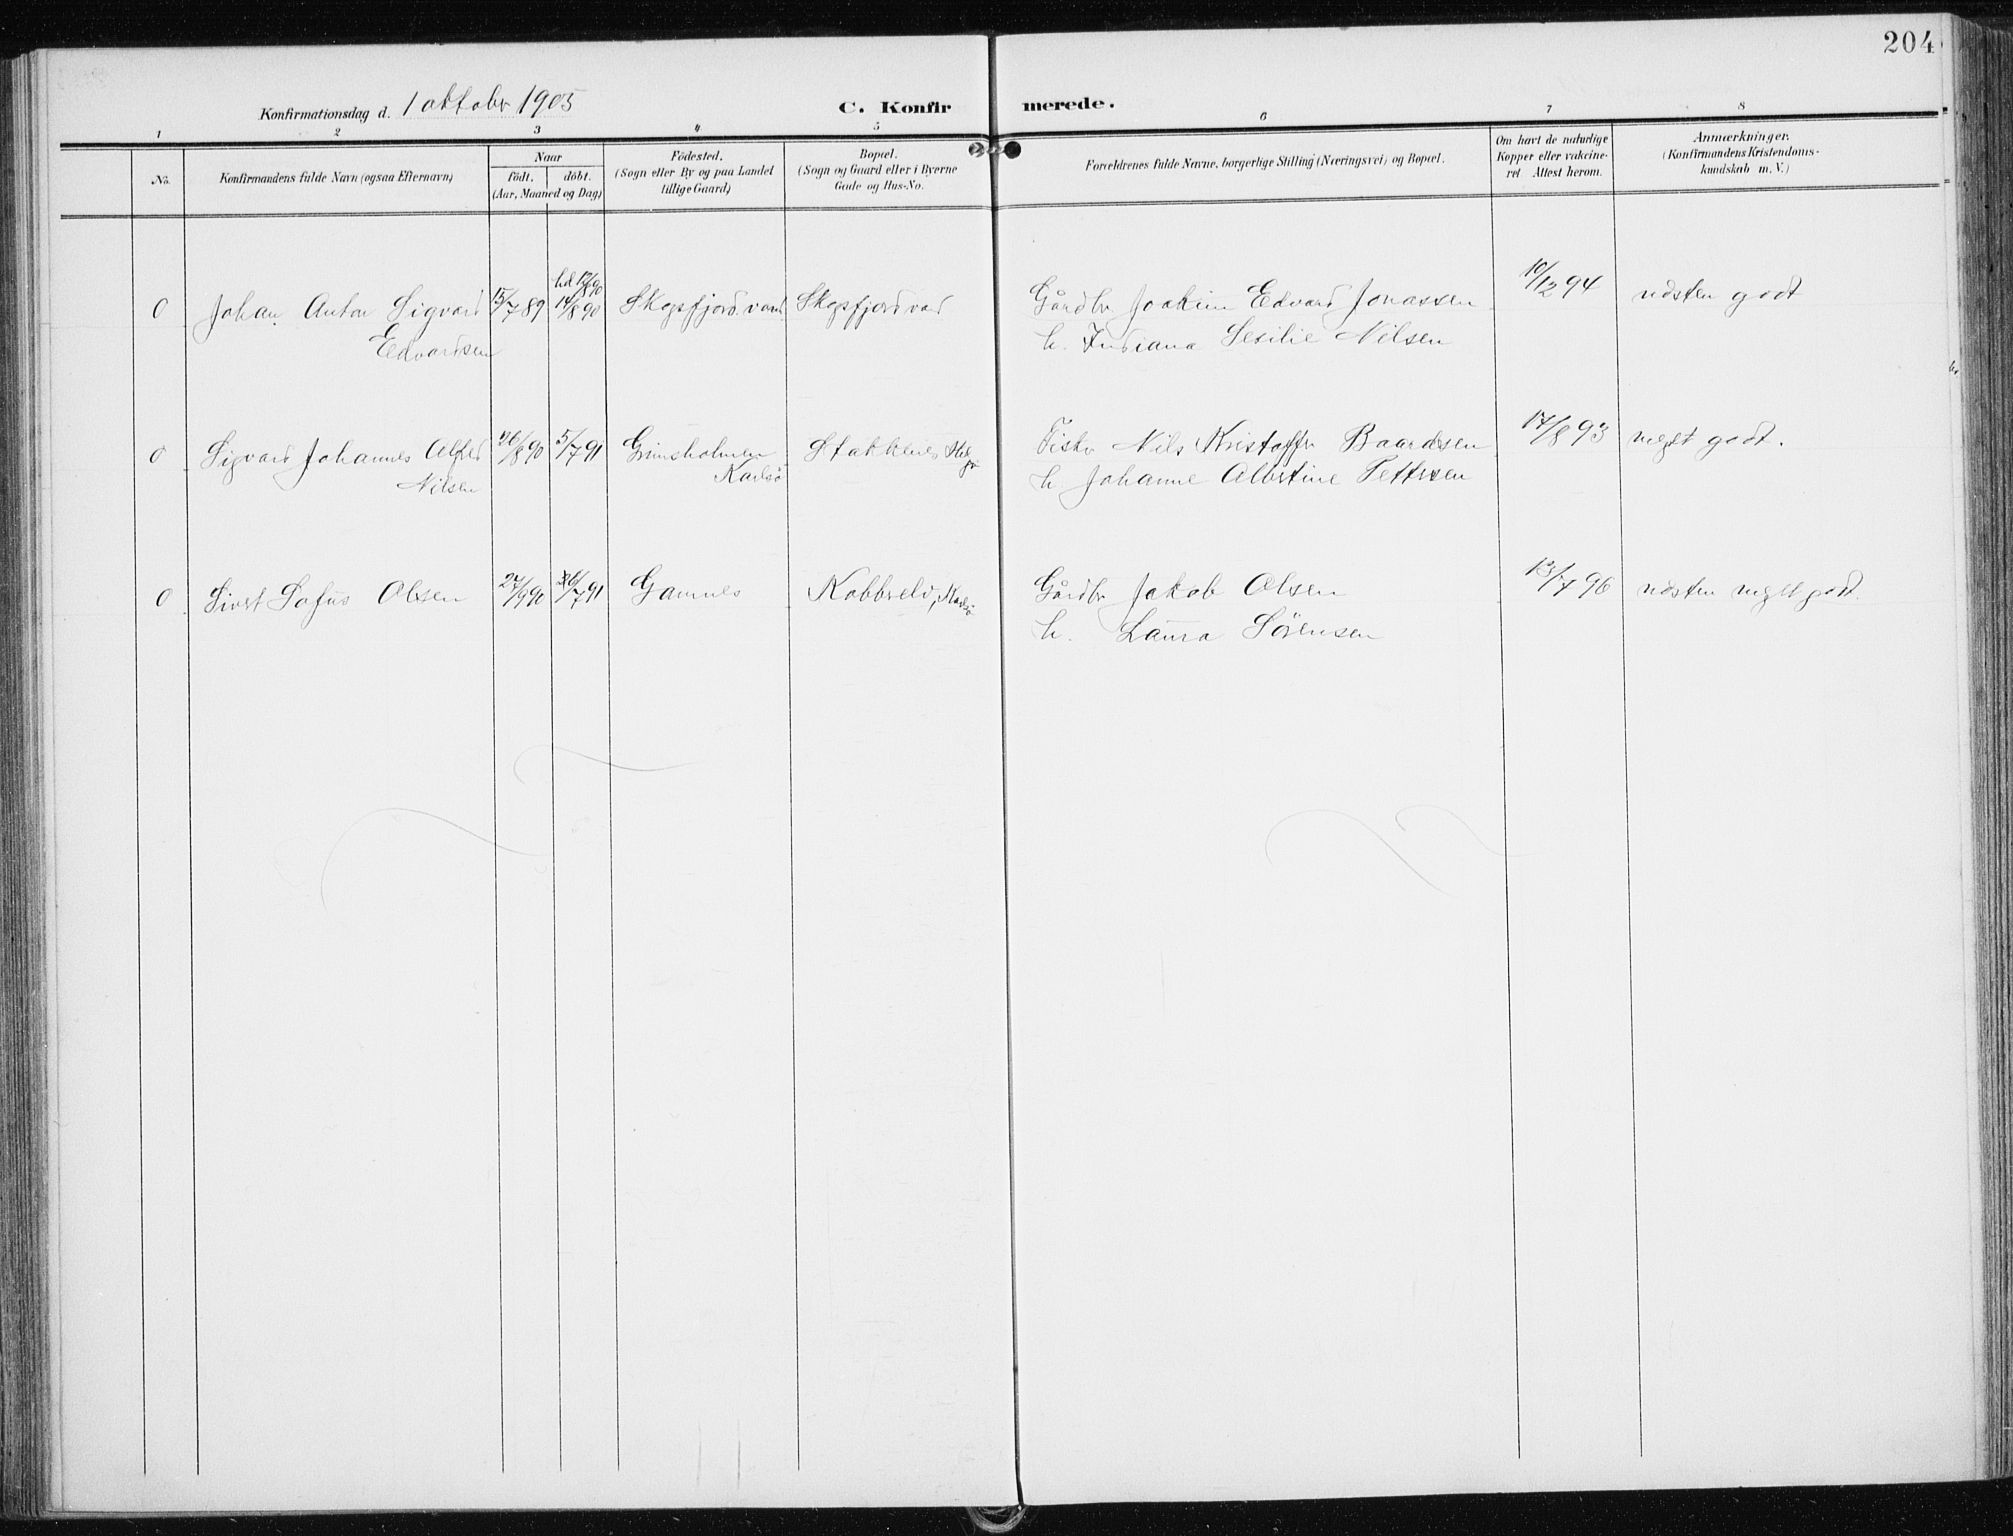 204
Konfirmationsdag d. 1 oktober 1905
C. Konfirmerede.
1 2 3 4 5 6 7 8
No.
Konfirmandens fulde Navn (ogsaa Efternavn)
Naar
födt. döbt.
(Aar, Maaned og Dag)
Födested.
(Sogn eller By og paa Landet
tillige Gaard)
Bopæl.
(Sogn og Gaard eller i Byerne
Gade og Hus-No.
Forældrenes fulde Navne, borgerlige Stilling (Næringsvei) og Bopæl.
Om havt de naturlige
Kopper eller vakcine-
ret Attest herom.
Anmærkninger.
(Konfirmandens Kristendoms-
kundskab m. V.)
0 Johan Anton Sigvard 15/7 89 14/8 90 Skogsfjordvand Skogsfjordvad Gårdbr Joakim Edvard Jonassen 10/12 94 næsten godt
Edvardsen h. Indiana Sesilie Nilsen
0 Sigvard Johannes Alfred 26/8 90 5/7 91 Grimsholmen Stakkenes Helgø Fisker Nils Kristoffer Baardsen 17/8 93 meget godt.
Nilsen Karlsø h Johanne Albertine Pettersen
0 Sivert Sofus Olsen 27/9 90 26/7 91 Gamnes Kobbvelv, Karlsø Gårdbr Jakob Olsen 13/7 96 næsten meget godt.
h. Laura Sørensen